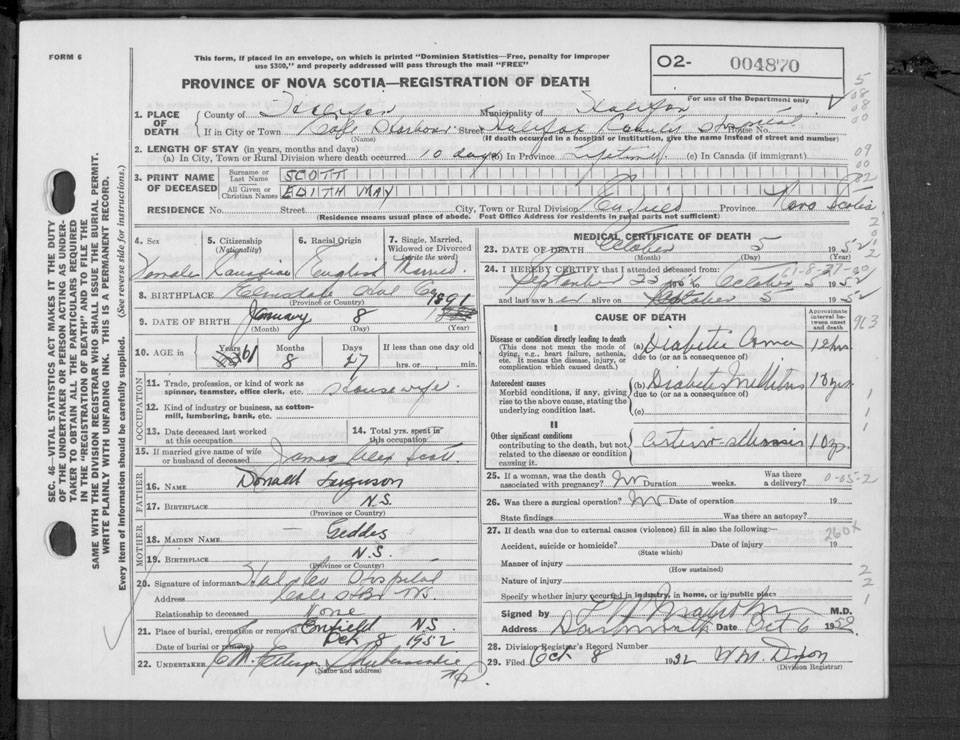 FORM 6
This form, if placed in an envelope, on which is printed "Dominion Statistics—Free, penalty for improper
use $300," and properly addressed will pass through the mail "FREE"
PROVINCE OF NOVA SCOTIA—REGISTRATION OF DEATH
02- 004870
For use of the Department only
1. PLACE OF DEATH
County of Halifax Municipality of Halifax
If in City or Town Cole Harbour Street Halifax County Hospital House No.
(Name) (If death occurred in a hospital or institution, give the name instead of street and number)
2. LENGTH OF STAY (in years, months and days)
(a) In City, Town or Rural Division where death occurred 10 days (b) In Province Lifetime (c) In Canada (if immigrant)
3. PRINT NAME OF DECEASED
Surname or Last Name SCOTT
All Given or Christian Names EDITH MAY
RESIDENCE No. Street City, Town or Rural Division Enfield Province Nova Scotia
(Residence means usual place of abode. Post Office Address for residents in rural parts not sufficient)
4. Sex Female
5. Citizenship (Nationality) Canadian
6. Racial Origin English
7. Single, Married, Widowed or Divorced (write the word) Married.
8. BIRTHPLACE Elmsdale Hal Co
(Province or Country)
9. DATE OF BIRTH January 8 1891
(Month) (Day) (Year)
10. AGE in Years 61 Months 8 Days 27 If less than one day old hrs. or min.
OCCUPATION
11. Trade, profession, or kind of work as spinner, teamster, office clerk, etc. Housewife.
12. Kind of industry or business, as cotton-mill, lumbering, bank, etc.
13. Date deceased last worked at this occupation
14. Total yrs. spent in this occupation
15. If married give name of wife or husband of deceased James Alex Scott.
FATHER
16. NAME Donald Ferguson
17. BIRTHPLACE N.S.
(Province or Country)
MOTHER
18. MAIDEN NAME — Geddes
19. BIRTHPLACE N.S
(Province or Country)
20. Signature of informant Hal Co Hospital
Address Cole Hbr NS.
Relationship to deceased None
21. Place of burial, cremation or removal Enfield N.S.
Date of burial or removal Oct 8 1952
22. UNDERTAKER Shubenacadie
(Name and address)
MEDICAL CERTIFICATE OF DEATH
23. DATE OF DEATH October 5 1952
(Month) (Day)
24. I HEREBY CERTIFY that I attended deceased from:
September 25 to October 5 1952
and last saw her alive on October 5 1952
CAUSE OF DEATH
Approximate interval between onset and death
I
Disease or condition directly leading to death
(This does not mean the mode of dying, e.g., heart failure, asthenia, etc. It means the disease, injury, or complication which caused death.
(a) Diabetic Coma 12 hrs.
due to (or as a consequence of)
Antecedent causes
Morbid conditions, if any, giving rise to the above cause, stating the underlying condition last.
(b) Diabetes Mellitus 10 yrs.
due to (or as a consequence of)
(c)
II
Other significant conditions
contributing to the death, but not related to the disease or condition causing it.
Arterio-sclerosis 10 yr.
25. If a woman, was the death associated with pregnancy? No Duration weeks. Was there a delivery?
26. Was there a surgical operation? No Date of operation 19
State findings Was there an autopsy?
27. If death was due to external causes (violence) fill in also the following:—
Accident, suicide or homicide? Date of injury 19
(State which)
Manner of injury
(How sustained)
Nature of injury
Specify whether injury occurred in industry, in home, or in public place
Signed by M.D.
Address Dartmouth Date Oct 6 1952.
28. Division Registrar's Record Number
29. Filed Oct 8 1952 W.M. Dixon
(Division Registrar)
SEC. 46—VITAL STATISTICS ACT MAKES IT THE DUTY
OF THE UNDERTAKER OR PERSON ACTING AS UNDER-
TAKER TO OBTAIN ALL THE PARTICULARS REQUIRED
IN THE "REGISTRATION OF DEATH" AND TO FILE THE
SAME WITH THE DIVISION REGISTRAR WHO SHALL ISSUE THE BURIAL PERMIT.
WRITE PLAINLY WITH UNFADING INK. THIS IS A PERMANENT RECORD.
Every item of information should be carefully supplied. (See reverse side for instructions.)